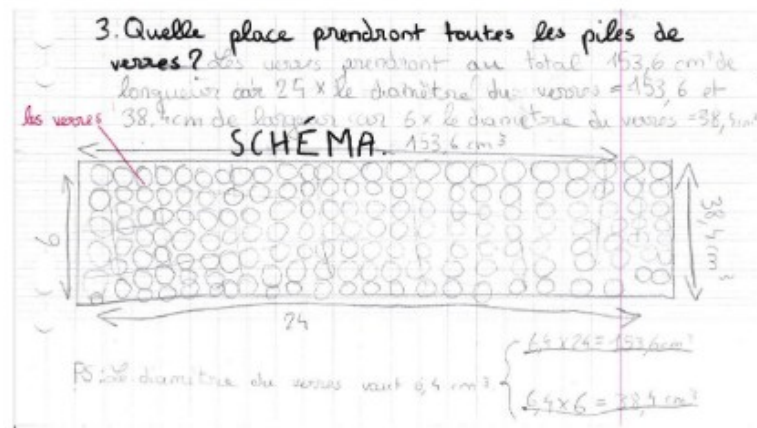 3. Quelle place prendront toutes les piles de
verres? Les verres prendront au total 153,6 cm³ de
longueur car 24 x le diamètre du verres = 153,6 et
38,4cm de largeur car 6 x le diamètre du verres = 38,4cm³
les verres
SCHÉMA.
153,6 cm³
6
38,4 cm³
24
PS: Le diamètre du verres vaut 6,4 cm³
6,4 x 24 = 153,6cm³
6,4 x 6 = 38,4 cm³